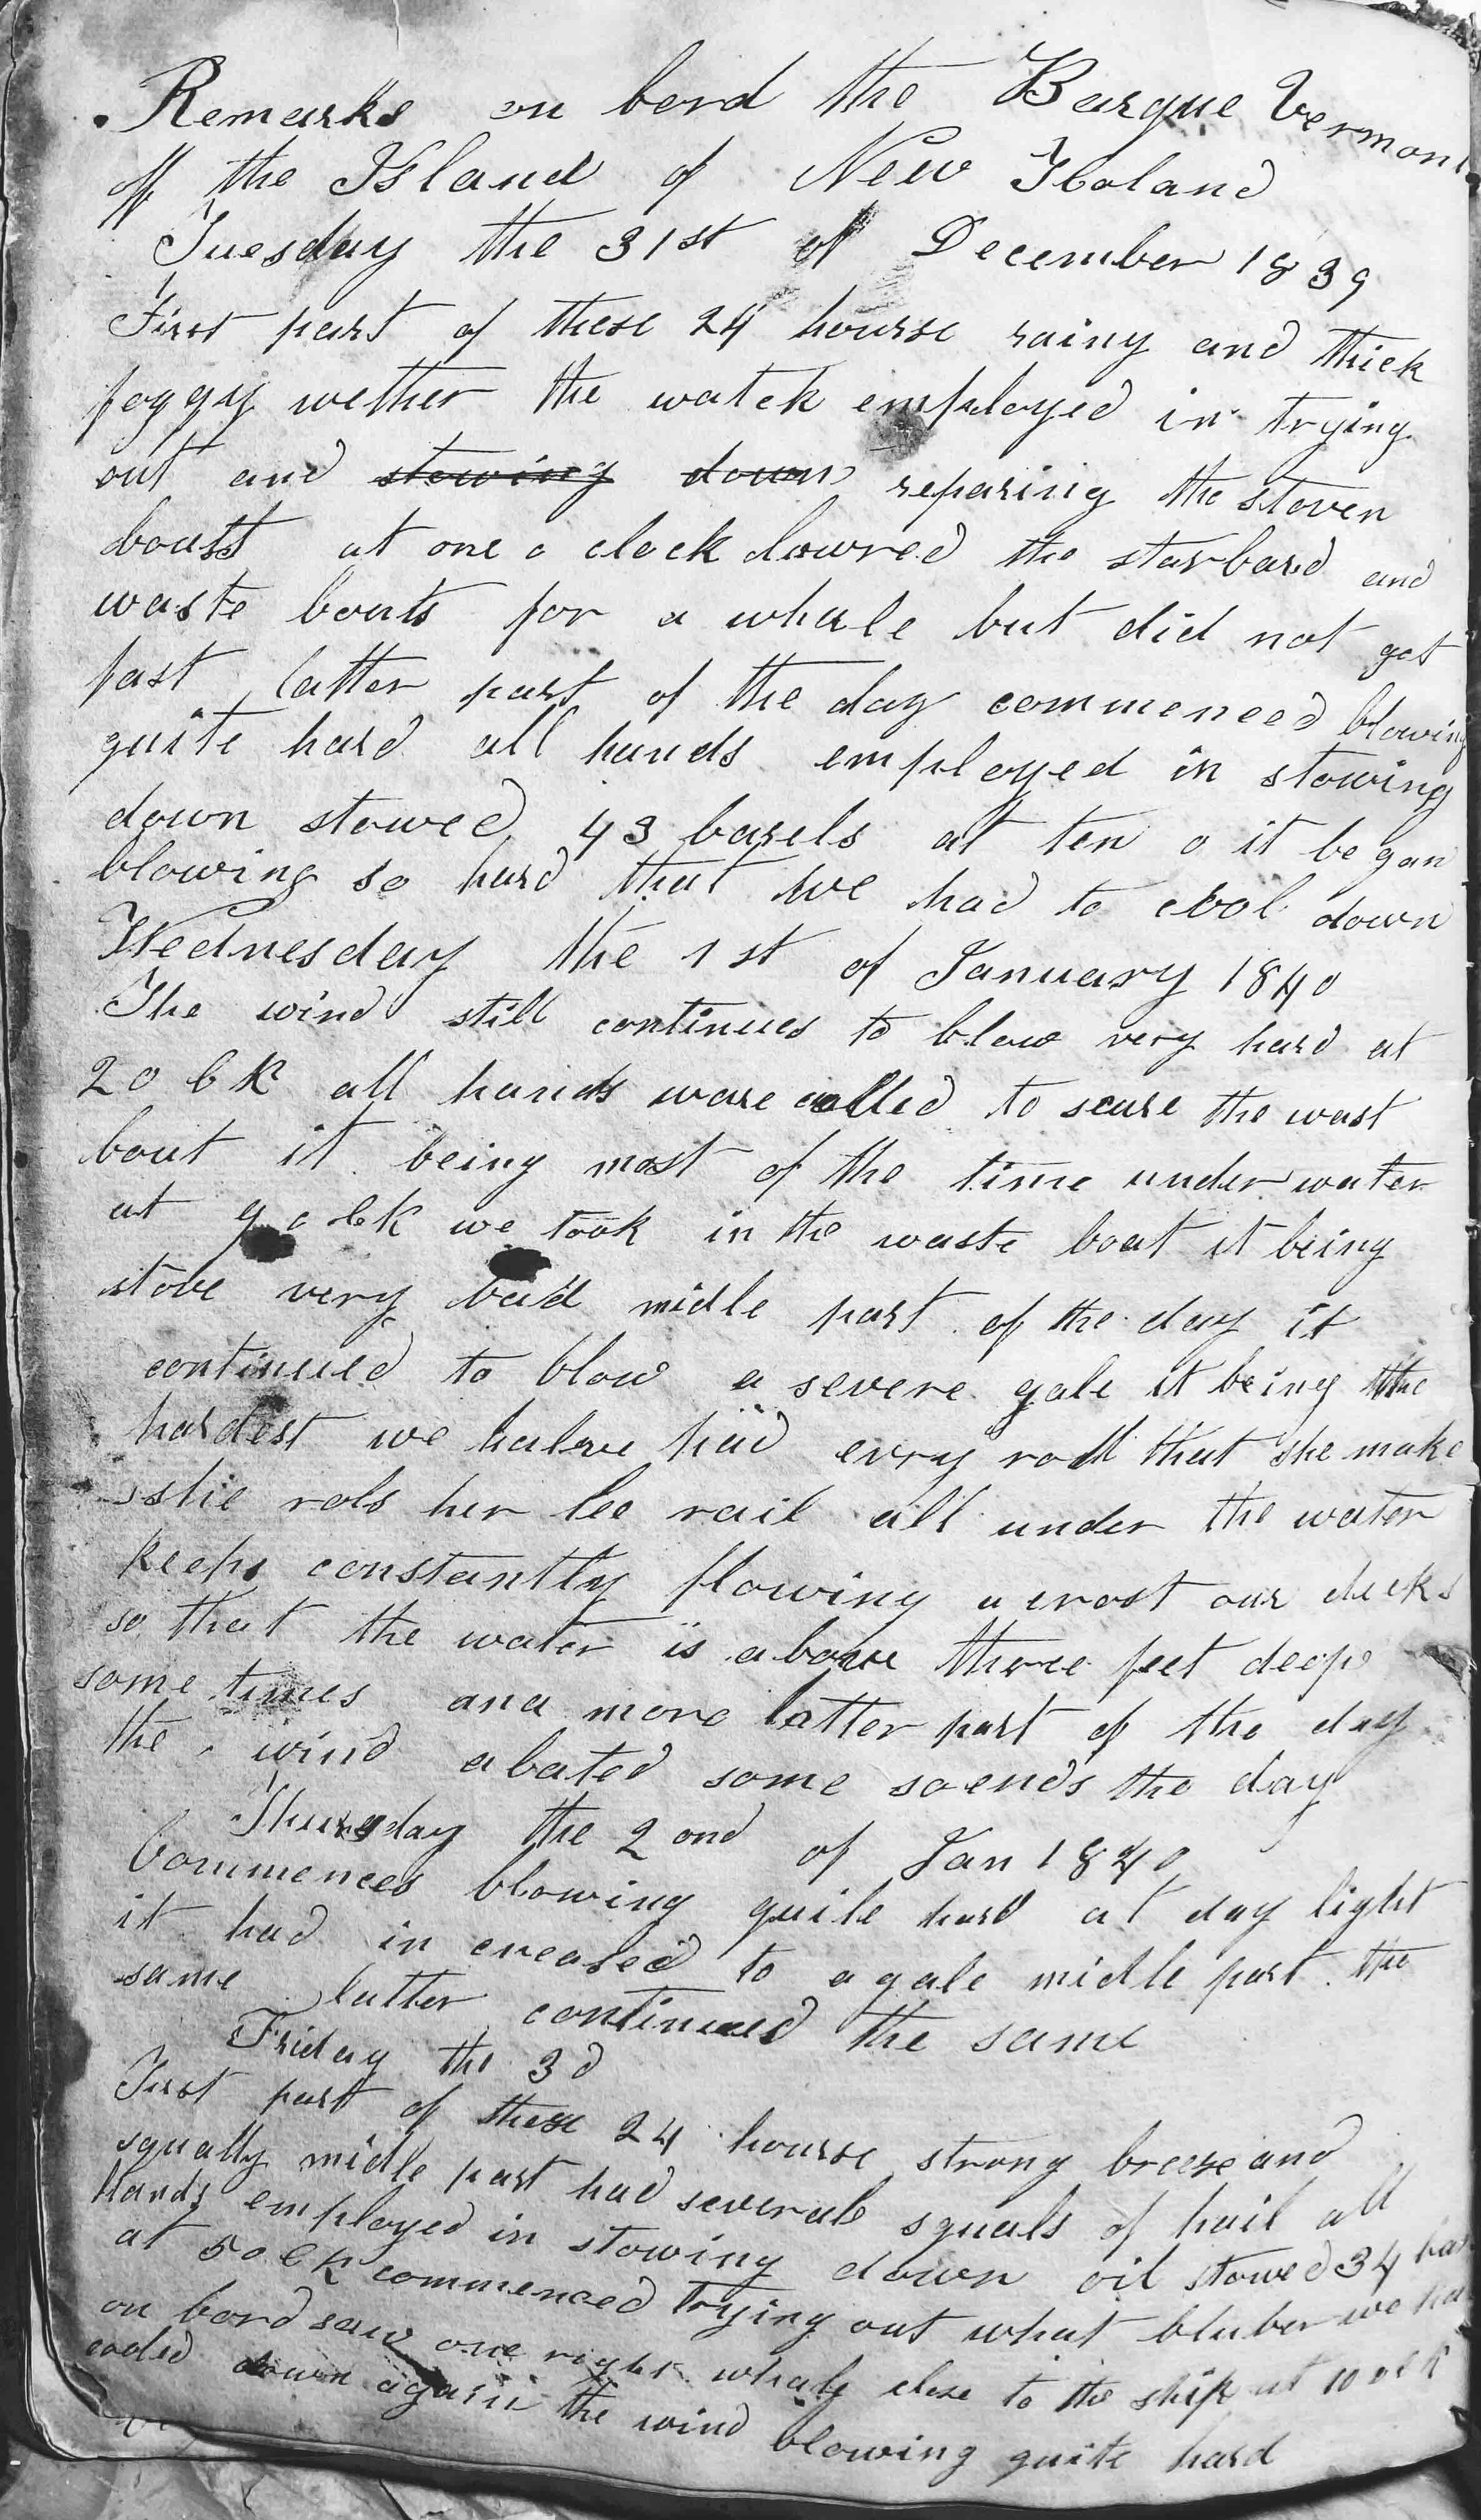 Remarks on bord the Barque Vermont
off the Island of New Holand
Tuesday the 31st of December 1839
First part of these 24 hourse rainy and thick
foggy wether the watck employed in trying
out and stowing down reparing the stoven
boatst at one o clock lowred the starbard and
waste boats for a whale but did not get
fast latter part of the day commenced blowing
quite hard all hands employed in stowing
down stowed 43 barels at ten o it began
blowing so hard that we had to cool down
Wednesday the 1st of January 1840
The wind still continues to blow very hard at
2 o Ck all hands ware called to scure the wast
boat it being most of the time under water
at 9 o clk we took in the waste boat it being
stove very bad midle part of the day it
continued to blow a severe gale it being the
hardest we halave had evry roll that she make
sshe rols her lee rail all under the water
keeps constantly flowing a crost our decks
so that the water is above three feet deep
some times and more latter part of the day
the wind abated some so ends the day
Thursday the 2 ond of Jan 1840
Commences blowing quite hard at day light
it had in creased to a gale midle part the
same latter continued the same
Friday the 3d
First part of these 24 hourse strong breeze and
squally midle part had severals squals of hail all
Hands employed in stowing down oil stowed 34 bar
at 5 o Ck commenced trying out what bluber we had
on bord saw one right whale close to the ship at 10 o clk
cooled down again the wind blowing quite hard